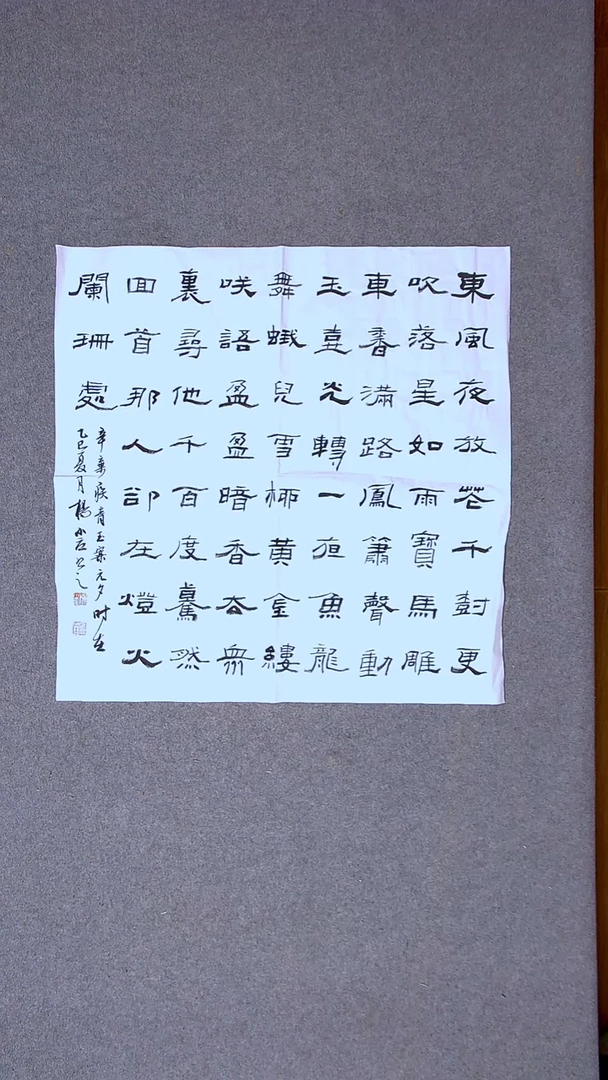 東風夜放花千尌更
吹落星如雨寶馬雕
車香滿路鳳簫聲動
玉壺光轉一夜魚龍
舞蛾兒雪柳黃金縷
咲語盈盈暗香去眾
裏尋他千百度驀然
回首那人卻在燈火
闌珊處
辛棄疾青玉案元夕时在
乙巳夏月楊小